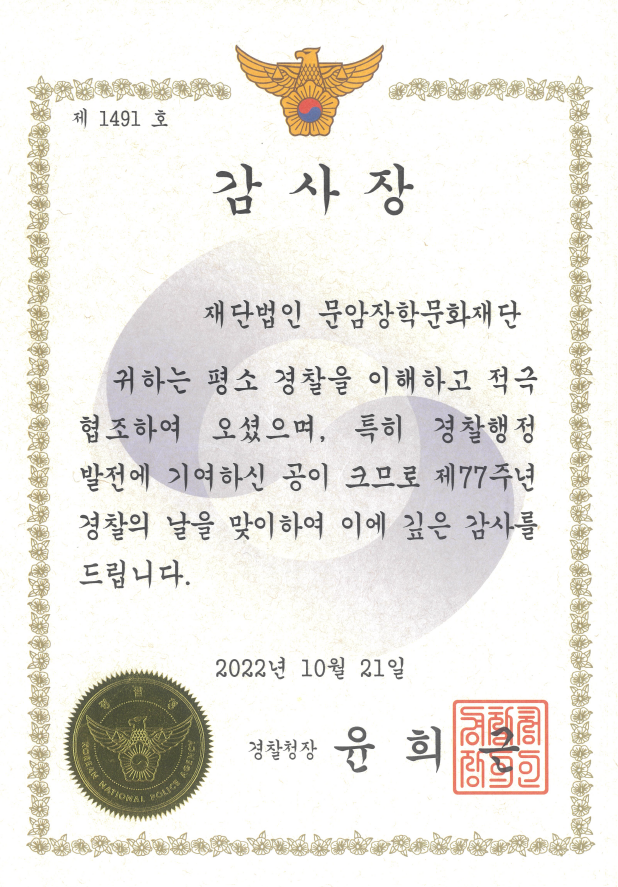 제 1491 호
감 사 장
재단법인 문암장학문화재단
귀하는 평소 경찰을 이해하고 적극
협조하여 오셨으며, 특히 경찰행정
발전에 기여하신 공이 크므로 제77주년
경찰의 날을 맞이하여 이에 깊은 감사를
드립니다.
2022년 10월 21일
경찰청
KOREAN NATIONAL POLICE AGENCY
경찰청장 윤 희 근